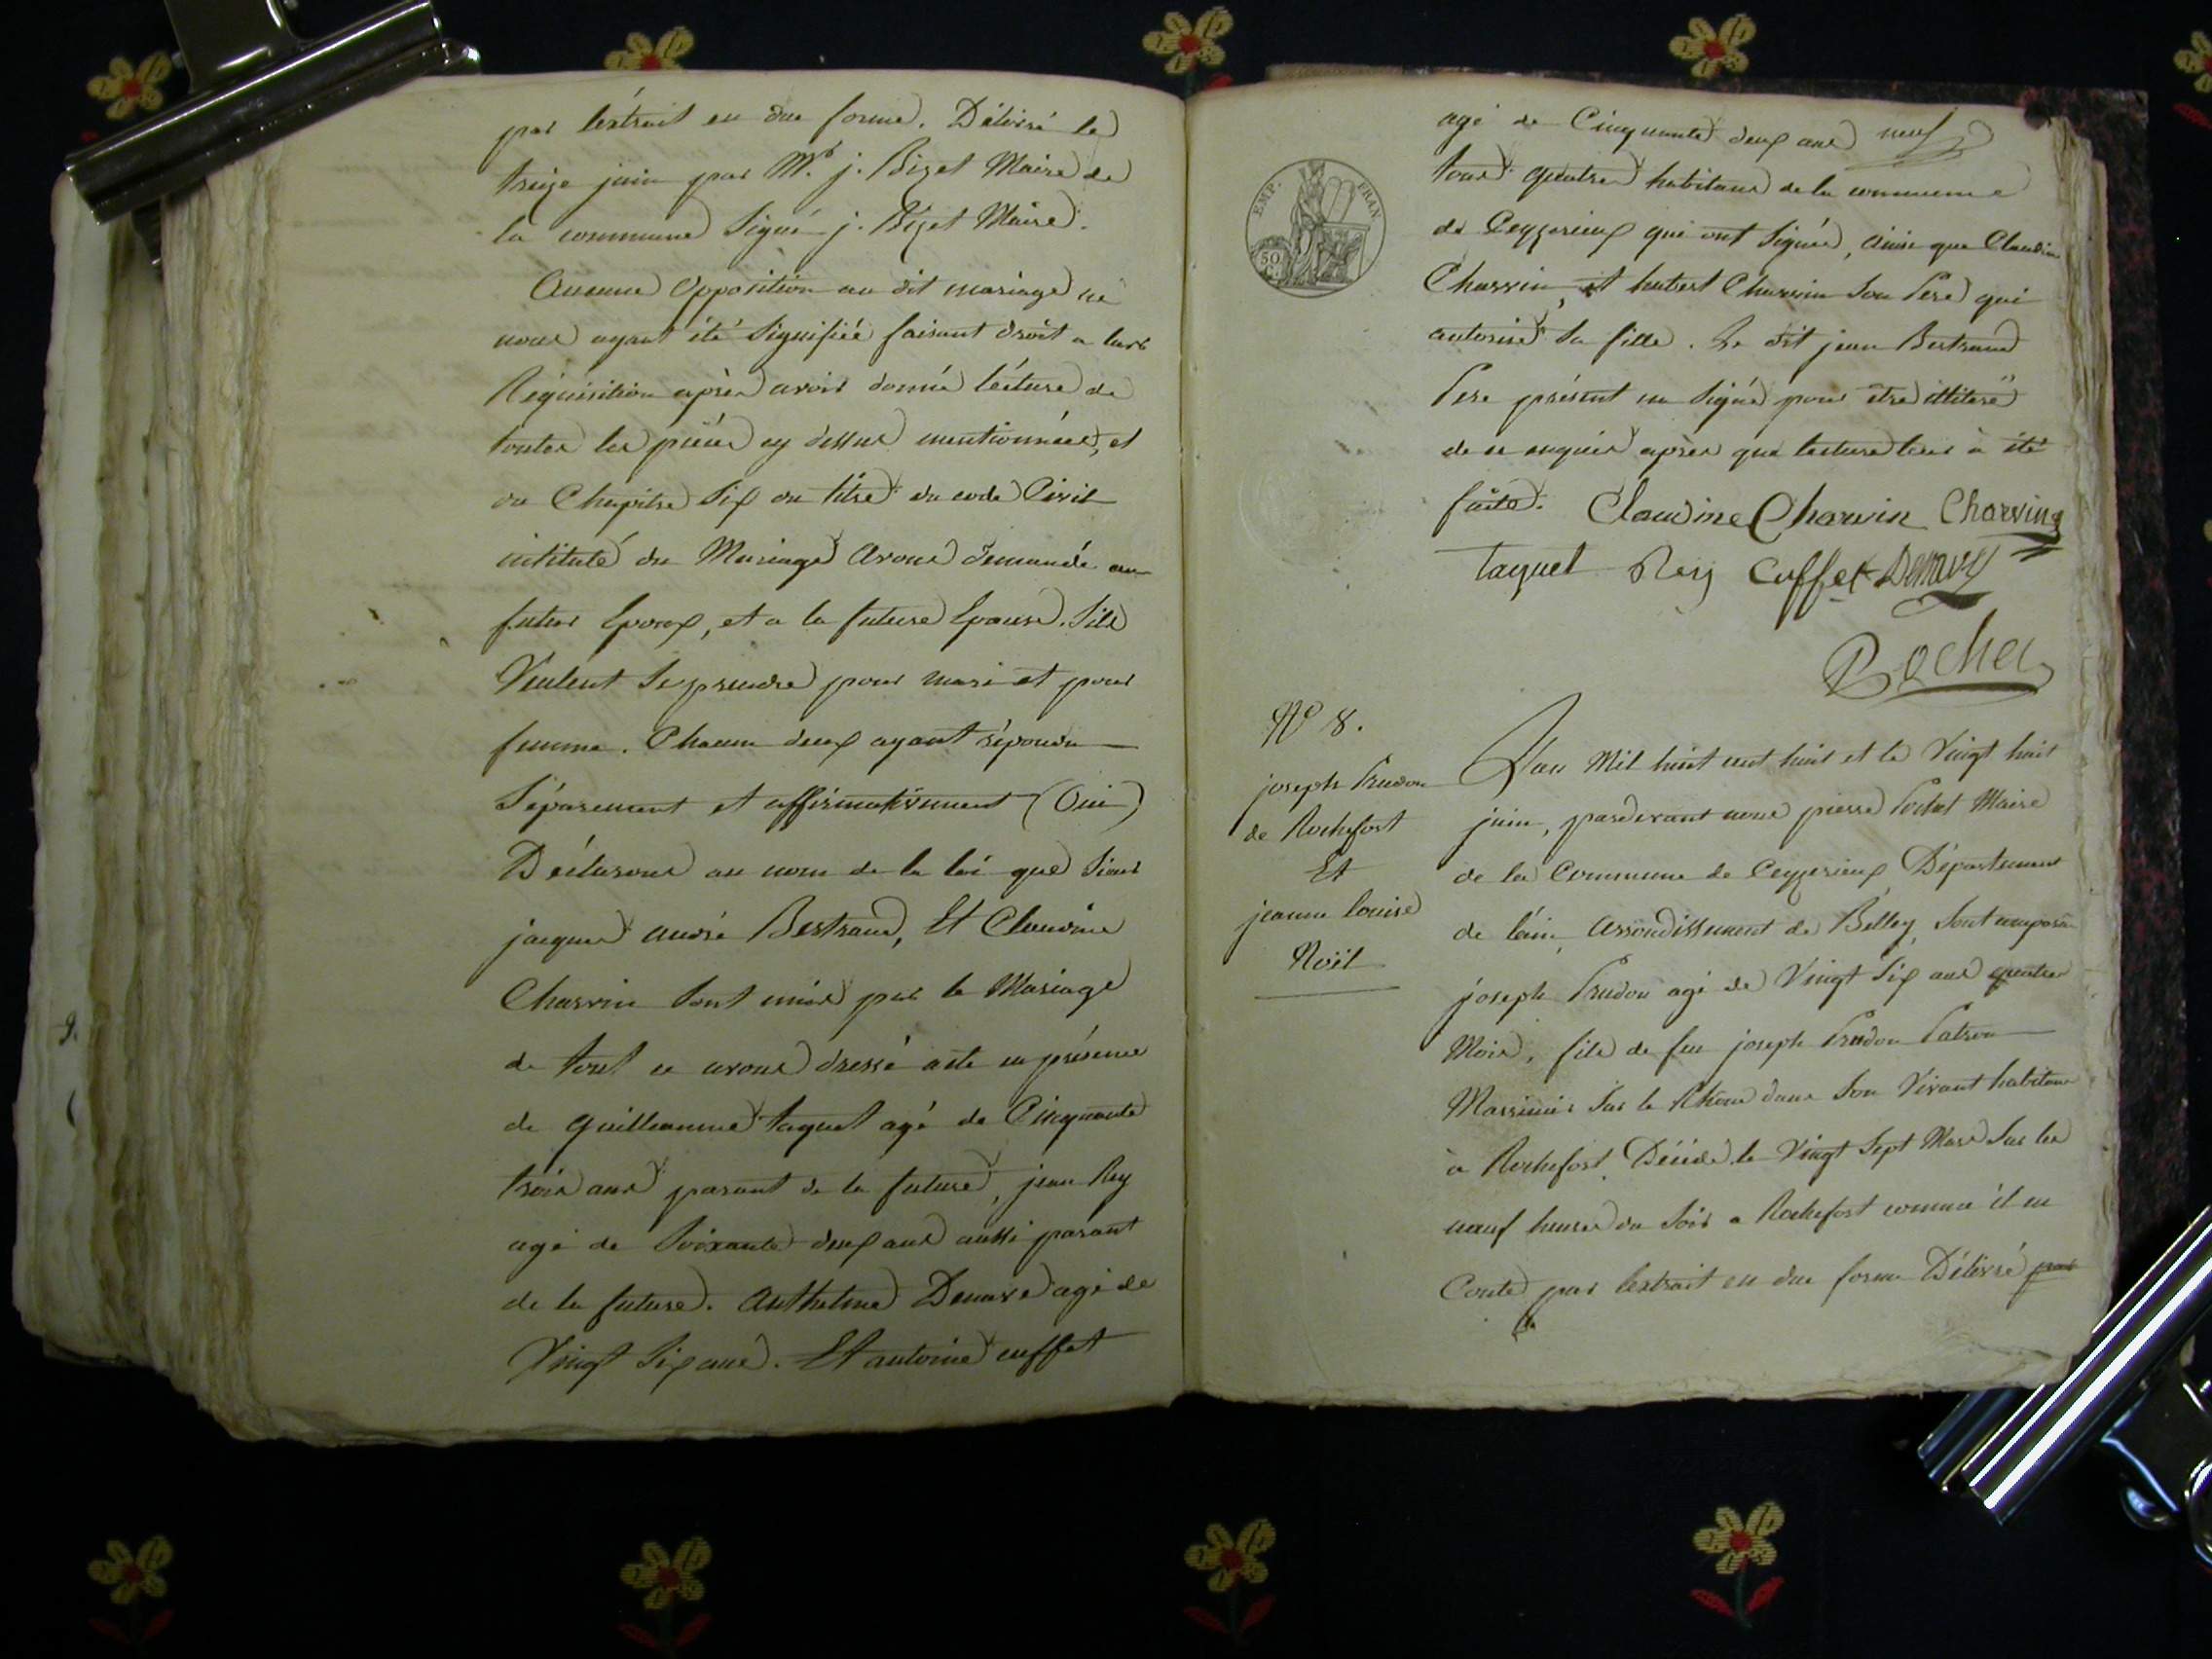 par l'extrait en due forme. Délivré le
treize juin par Mr. j. Bizet Maire de
la commune Signé j. Bizet Maire.
Aucune Opposition au dit mariage ne
nous ayant été Signifiée faisant droit a leur
Réquisition après avoir donnée lécture de
toutes les pièces cy dessus mentionnées, et
du Chapitre Six du titre du code Civil
intitulé du Mariage avons demandé au
futur Epoux, et a la future Epouse. Sils
Veulent Se prendre pour mari et pour
femme. Chacun deux ayant répondu
Séparement et affirmativement (Oui)
Déclarons au nom de la loi que Sieur
jacques andré Bertrand, Et Claudine
Charvin Sont unis par le Mariage
de tout ce avons dressé acte en présence
de guilleaume taquet agé de Cinquante
trois ans parant de la future, jean Rey
agé de Soixante deux ans aussi parant
de la future. Anthelme Denave agé de
Vingt Six ans. Et antoine cuffet
9.
EMP. FRAN
50 C.
agé de Cinquante deux ans neuf
tous quatre habitans de la commune
de Ceyzerieux qui ont Signés, ainsi que Claudine
Charvin, et hubert Charvin Son Pere qui
autorise Sa fille. Le dit jean Bertrand
Pere présent
de ce enquis après que lecture leur à été
faite. Claudine Charvin Charvin
Taquet Rey Cuffet Denave
Rochet
No 8.
joseph Prudon
de Rochefort
Et
jeanne louise
Noël
L'an Mil huit cent huit et le Vingt huit
juin, pardevant nous pierre Maire
de la Commune de Ceyzerieux Département
de l'ain, arrondissement de Belley, Sont comparu
joseph Prudon agé de Vingt Six ans quatre
Mois, fils de feu joseph Prudon Patron
Marinier Sur le Rhône dans Son Vivant habitant
à Rochefort, Décédé le Vingt Sept Mars Sur les
neuf heures du Soir a Rochefort comme il en
Conste par l'extrait en due forme Délivré par